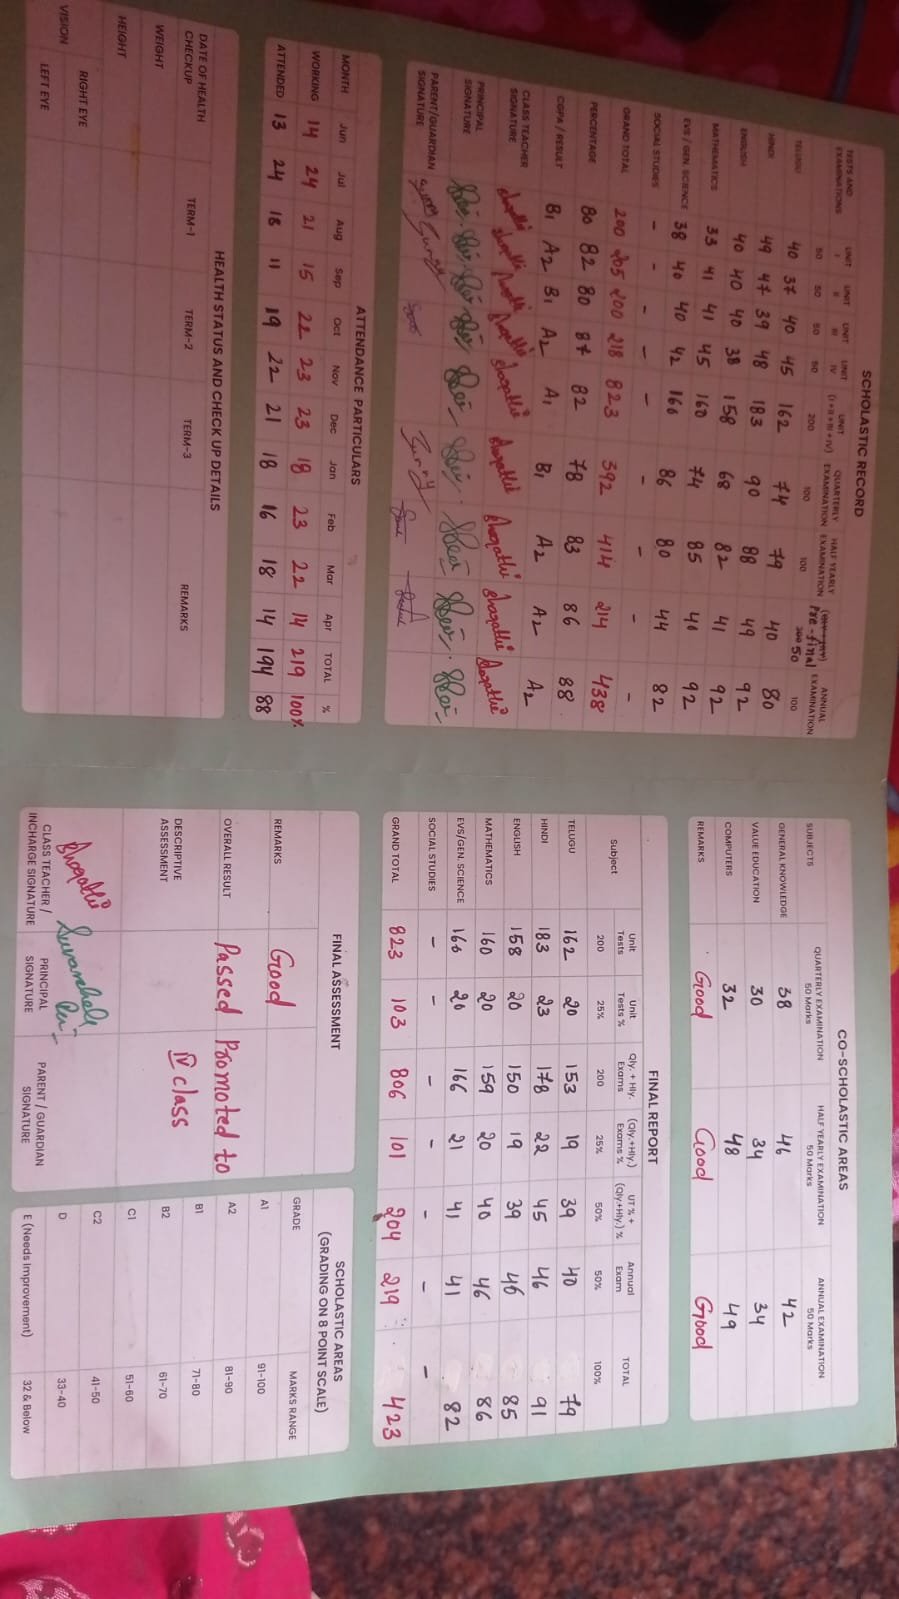 SCHOLASTIC RECORD
TESTS AND EXAMINATIONS UNIT I UNIT II UNIT III UNIT IV UNIT (I+II+III+IV) QUARTERLY EXAMINATION HALF YEARLY EXAMINATION Pre-final ANNUAL EXAMINATION
50 50 50 50 200 100 100 50 100
TELUGU 40 37 40 45 162 74 79 40 80
HINDI 49 47 39 48 183 90 88 49 92
ENGLISH 40 40 40 38 158 68 82 41 92
MATHEMATICS 33 41 41 45 160 74 85 40 92
EVS / GEN. SCIENCE 38 40 40 42 160 86 80 44 82
SOCIAL STUDIES - - - - - - - - -
GRAND TOTAL 200 205 200 218 823 392 414 214 438
PERCENTAGE 80 82 80 87 82 78 83 86 88
CGPA / RESULT B1 A2 B1 A2 A1 B1 A2 A2 A2
CLASS TEACHER SIGNATURE
PRINCIPAL SIGNATURE
PARENT/GUARDIAN SIGNATURE
ATTENDANCE PARTICULARS
MONTH Jun Jul Aug Sep Oct Nov Dec Jan Feb Mar Apr TOTAL %
WORKING 14 24 21 15 22 23 23 18 23 22 14 219 100%
ATTENDED 13 24 18 11 19 22 21 18 16 18 14 194 88
HEALTH STATUS AND CHECK UP DETAILS
DATE OF HEALTH CHECKUP TERM-1 TERM-2 TERM-3 REMARKS
WEIGHT
HEIGHT
VISION RIGHT EYE
LEFT EYE
CO-SCHOLASTIC AREAS
SUBJECTS QUARTERLY EXAMINATION 50 Marks HALF YEARLY EXAMINATION 50 Marks ANNUAL EXAMINATION 50 Marks
GENERAL KNOWLEDGE 38 46 42
VALUE EDUCATION 30 34 34
COMPUTERS 32 48 49
REMARKS Good Good Good
FINAL REPORT
Subject Unit Tests Unit Tests % Qly. + Hly. Exams (Qly.+Hly.) Exams % UT % + (Qly.+Hly.) % Annual Exam TOTAL
200 25% 200 25% 50% 50% 100%
TELUGU 162 20 153 19 39 40 79
HINDI 183 23 178 22 45 46 91
ENGLISH 158 20 150 19 39 46 85
MATHEMATICS 160 20 159 20 40 46 86
EVS/GEN. SCIENCE 160 20 166 21 41 41 82
SOCIAL STUDIES - - - - - - -
GRAND TOTAL 823 103 806 101 204 219 423
FINAL ASSESSMENT
REMARKS Good
OVERALL RESULT Passed Promoted to
DESCRIPTIVE ASSESSMENT IV class
CLASS TEACHER / INCHARGE SIGNATURE PRINCIPAL SIGNATURE PARENT / GUARDIAN SIGNATURE
SCHOLASTIC AREAS
(GRADING ON 8 POINT SCALE)
GRADE MARKS RANGE
A1 91-100
A2 81-90
B1 71-80
B2 61-70
C1 51-60
C2 41-50
D 33-40
E (Needs Improvement) 32 & Below